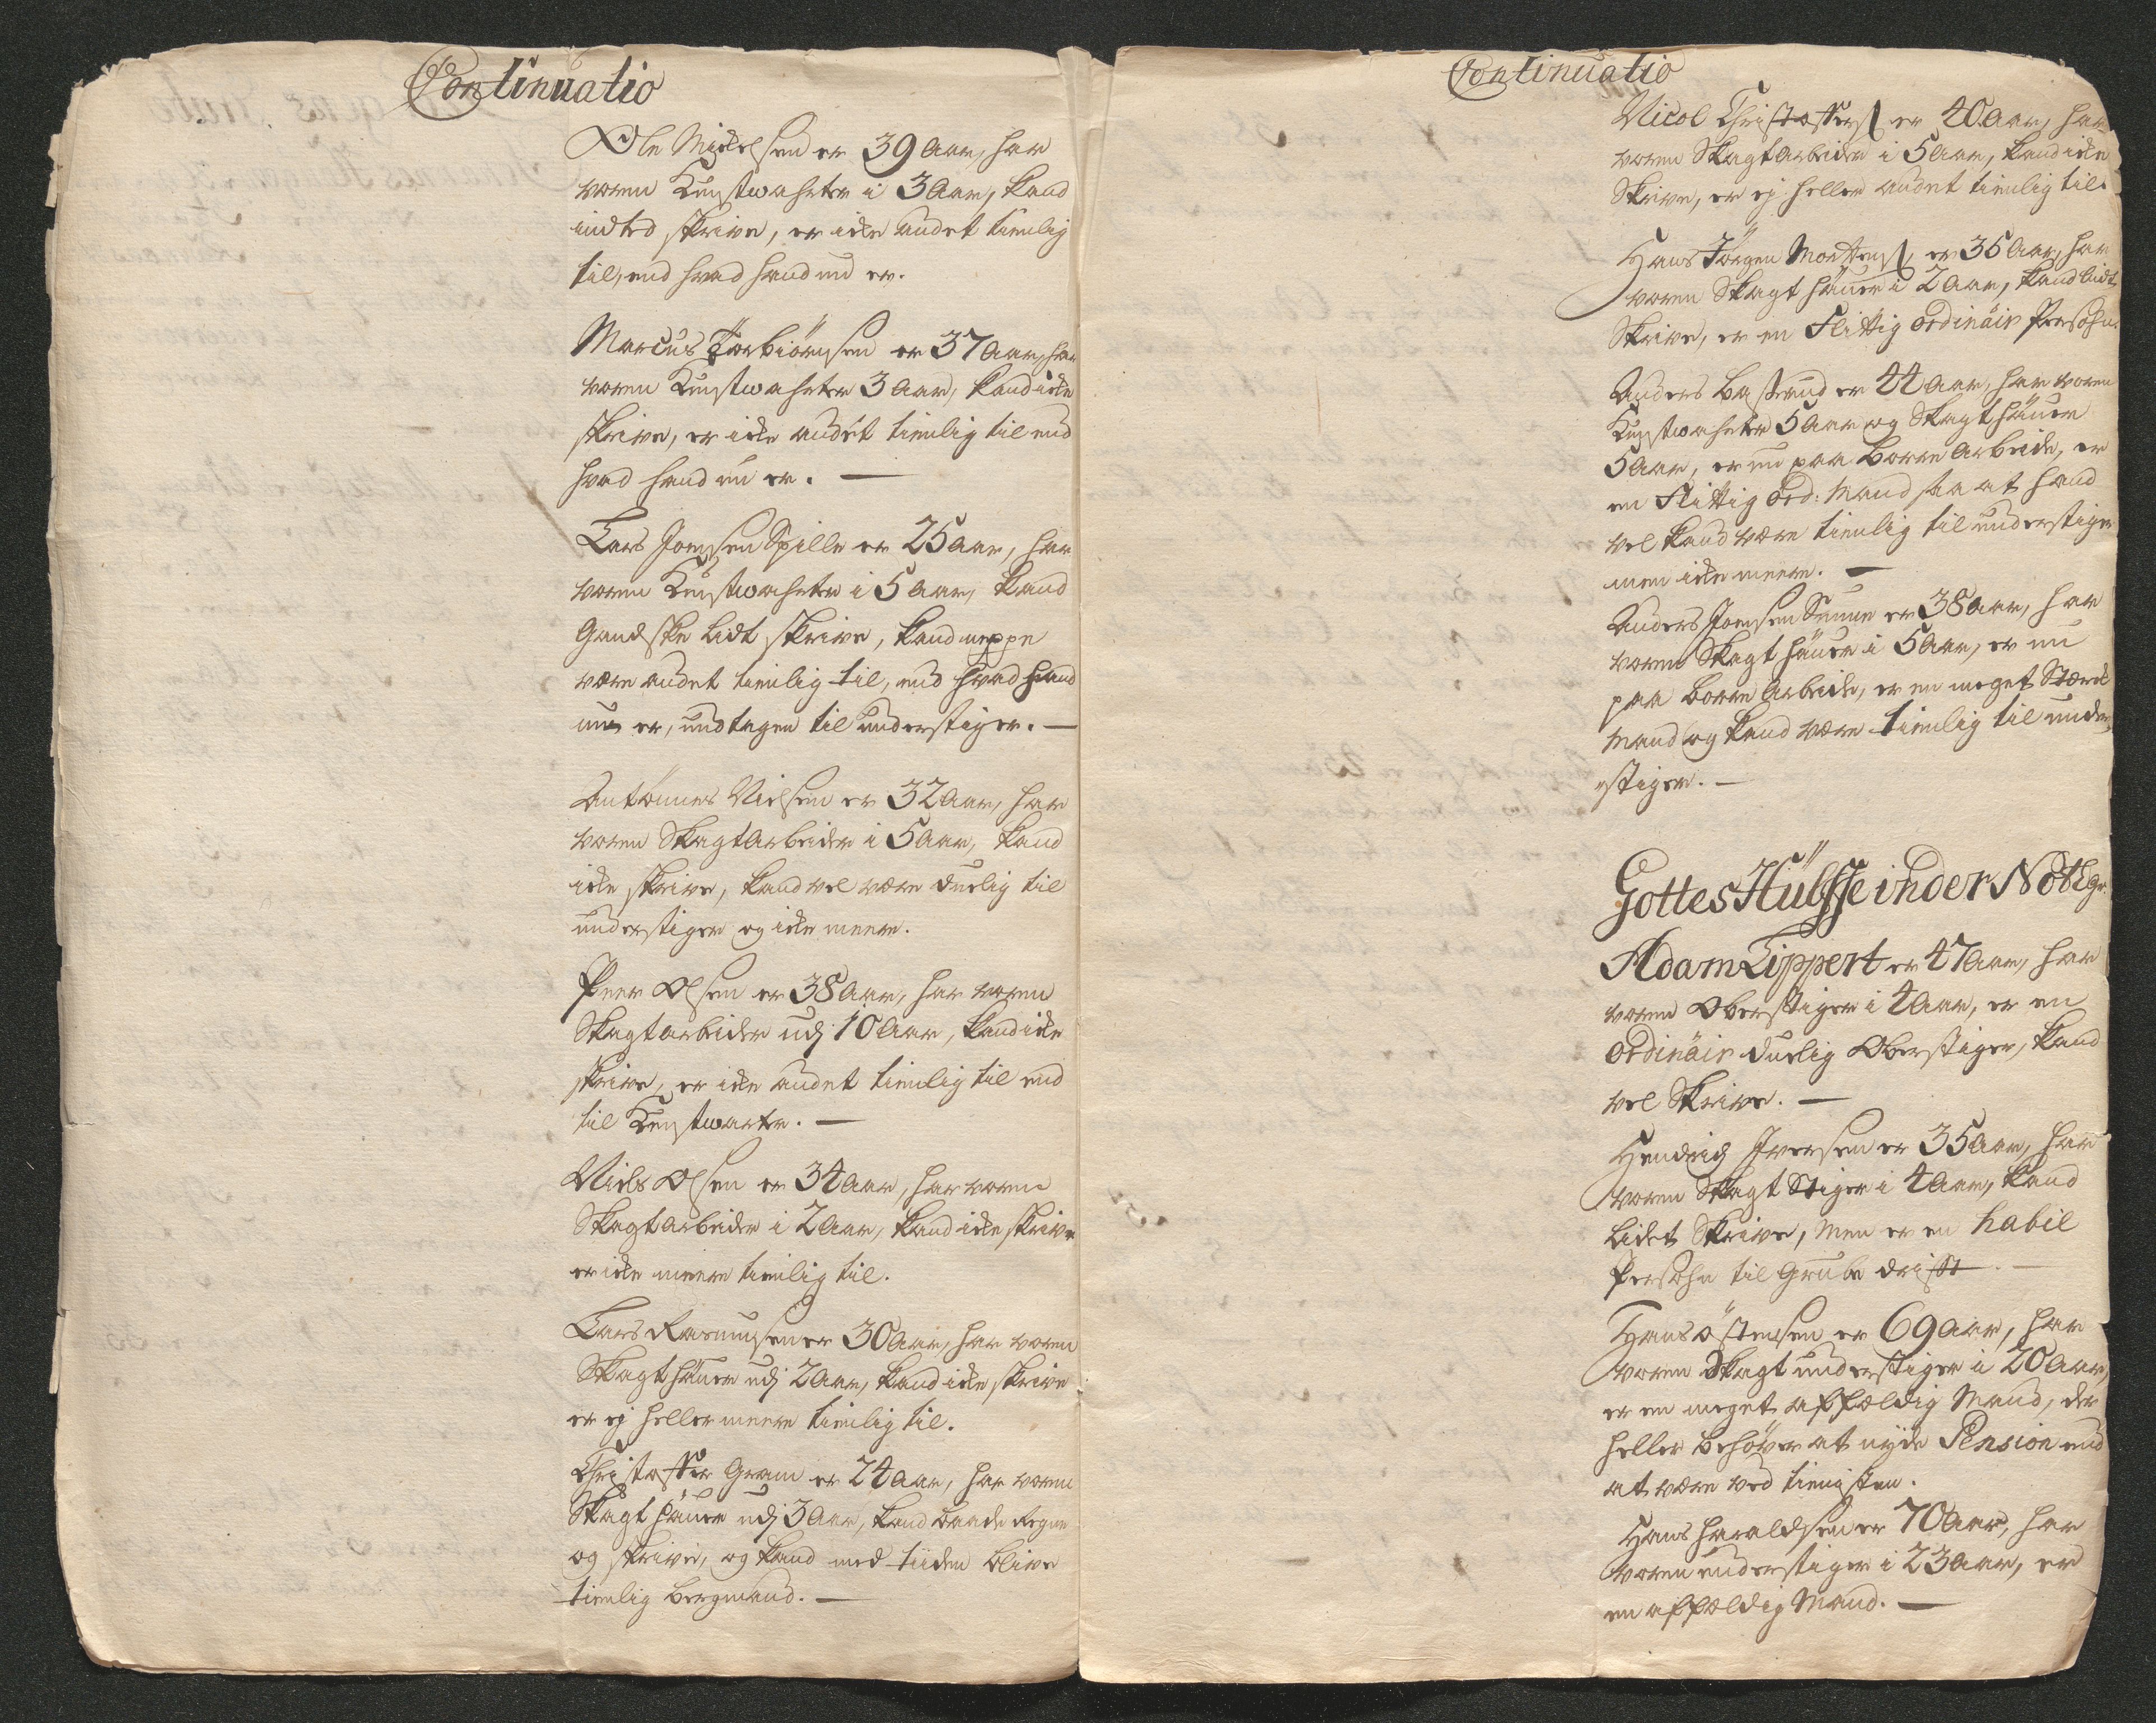 Continuatio
Ole Mickelsen er 39 Aar, har
voren Kunstwahrter i 3 Aar, kand
indted skrive, er icke andet tienlig
til, end hvad hand nu er.
Marcus Torbiörnsen er 37 Aar, har
voren Kunstwahrter 3 Aar, kand icke
skrive, er icke andet tienlig til end
hvad hand nu er. —
Lars Joensen Spille er 25 Aar, har
voren Kunstwahrter i 5 Aar, kand
Gandske lidt skrive, kand neppe
være andet tienlig til, end hvad hand
nu er, undtagen til understiger. —
Antonius Nielsen er 32 Aar, har
voren Skagtarbeider i 5 Aar, kand
icke skrive, kand vel være duelig til
understiger og icke meere.
Peer Olsen er 38 Aar, har voren
Skagtarbeider udj 10 Aar, kand icke
skrive, er icke andet tienlig til end
til Kunstwarter. —
Niels Olsen er 34 Aar, har voren
Skagtarbeider i 2 Aar, kand icke skrive
er icke meere tienlig til.
Lars Rasmusen er 30 Aar, har voren
Skagthauer udj 2 Aar, kand icke skrive
er ej heller meere tienlig til.
Christoffer Gram er 24 Aar, har voren
Skagt häuer udj 3 Aar, kand baade Regne
og skrive, og kand med tiiden blive
tienlig bergmand. —
Continuatio
Nicol Christoffers er 40 Aar, har
voren Skagtarbeider i 5 Aar, kand icke
Skrive, er ej heller andet tienlig til.
Hans Jörgen Mortens, er 35 Aar, har
voren Skagt häuer i 2 Aar, kand lidt
Skrive, er en Flittig ordinair Persohn.
Anders Basrud er 44 Aar, har voren
Kunstwahrter 5 Aar og Skagt häuer
5 Aar, er nu paa Borre Arbeide, er
en Flittig ord: Mand saa at hand
vel kand være tienlig til understiger
men icke meere. —
Anders Joensen er 38 Aar, har
voren Skagt häuer i 5 Aar, er nu
paa Borre Arbeide, er en meget Stærck
Mand og kand være tienlig til under
stiger. —
Gottes Hülffe in der Noth Gr.
Adam Lippert er 47 Aar, har
voren Oberstiger i 4 Aar, er en
ordinair duelig Oberstiger, kand
vel Skrive. —
Hendrich Iversen er 35 Aar, har
voren Skagt Stiger i 4 Aar, kand
lidet Skrive, men er en habil
Persohn til Grube drifft. —
Hans Östensen er 69 Aar, har
voren Skagt understiger i 20 Aar,
er en meget affældig Mand, der
heller behöver at nyde Pension end
at være ved tienisten.
Hans Haraldsen er 70 Aar, har
voren understiger i 23 Aar, er
en affældig Mand. —